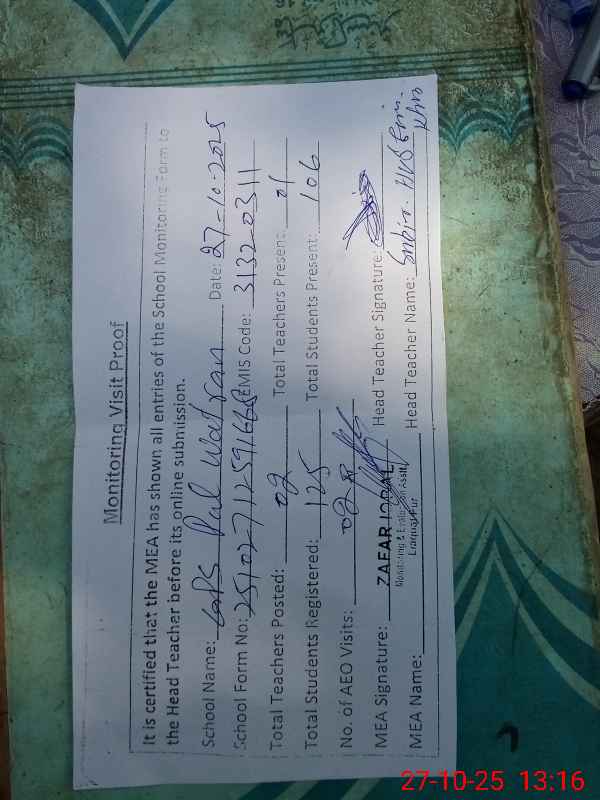 Monitoring Visit Proof
It is certified that the MEA has shown all entries of the School Monitoring Form to
the Head Teacher before its online submission.
School Name: GPS Pal Watran Date: 27-10-2025
School Form No: EMIS Code: 31320311
Total Teachers Posted: 02 Total Teachers Present: 01
Total Students Registered: 125 Total Students Present: 106
No. of AEO Visits: 02
MEA Signature: Head Teacher Signature:
ZAFAR IQBAL
Monitoring & Evaluation Assitt
MEA Name: Head Teacher Name:
27-10-25 13:16